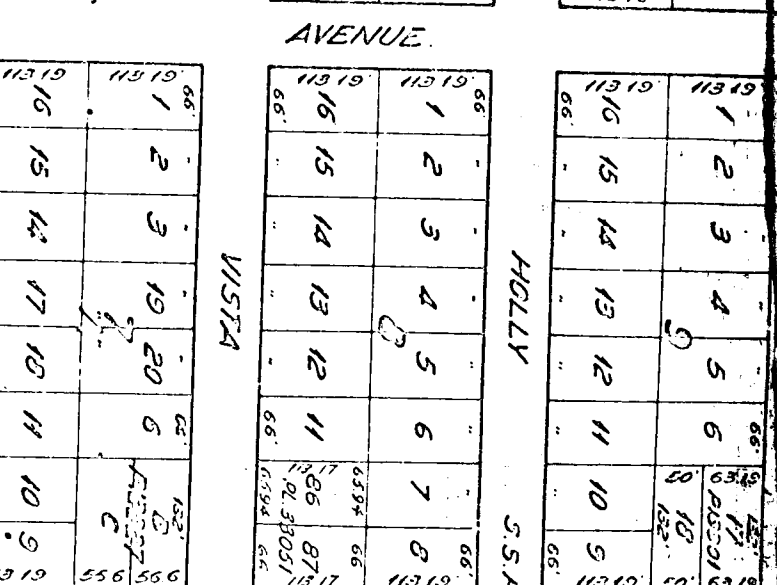 AVENUE.
113 19' 113 19'
16 1 66'
15 2 "
14 3 "
17 19
18 20 "
11 6 66'
10
9
C
132'
113 19 55 6 56.6
VISTA
113 19' 113 19'
66' 16 1 66'
" 15 2 "
" 14 3 "
" 13 4 "
" 12 5 "
66' 11 6 "
113 17
65 94 86 65 94 7 "
PL 33051
66 87 66 8 66'
113 17 113 19'
HOLLY
S.S.
113 19' 113 19'
66' 16 1
" 15 2 "
" 14 3 "
" 13 4
" 12 5
" 11 6 66'
" 10
50' 63.19
18 17
132'
66' 9
113 19' 50' 63 19